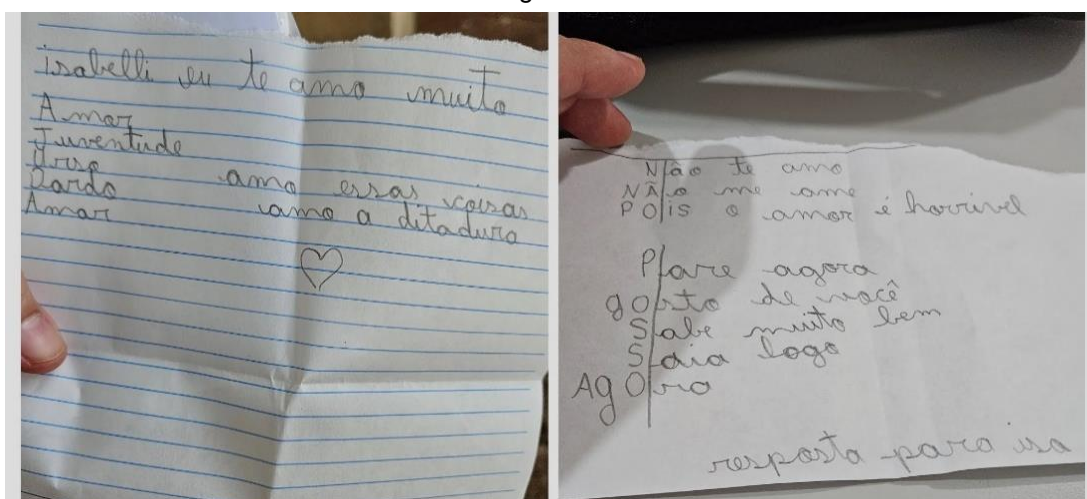 isabelli eu te amo muito
Amor
Juventude
Urso
Dardo amo essas coisas
Amar amo a ditadura
Não te amo
NÃo me ame
POis o amor é horrivel
Pare agora
gosto de você
Sabe muito bem
Saia logo
AgOra
resposta para isa